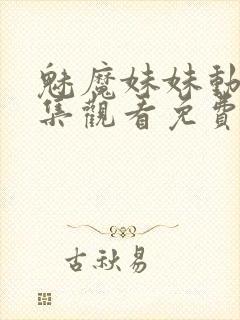 魅魔妹妹動
集觀看免費
古秋易